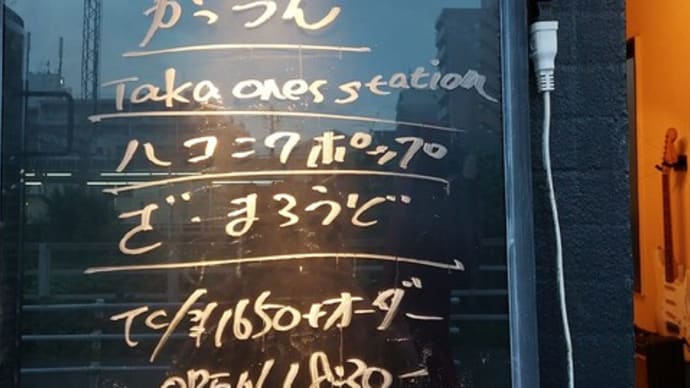 かっつん
Taka ones station
ハコニワポップ
ざ・まろうど
TC/¥1650+オーダー
OPEN/18:30~